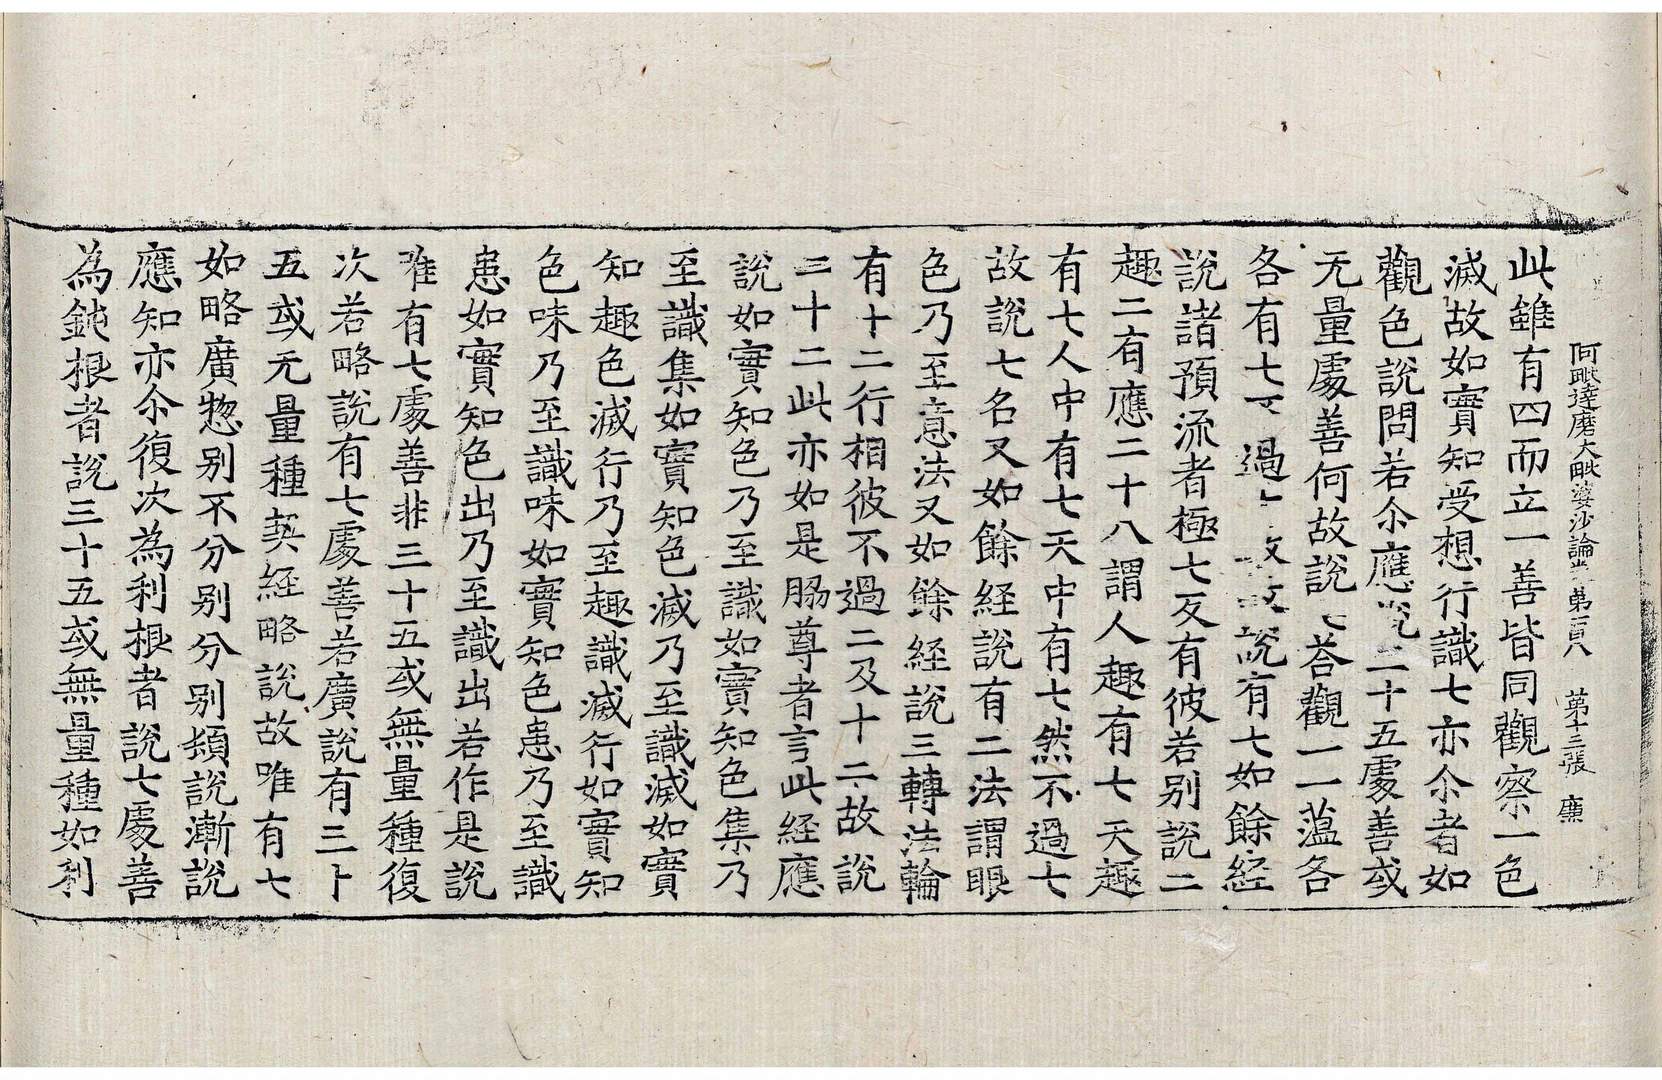 阿毗達磨大毗婆沙論 第一百八 第十三張 廉
此雖有四而立一善皆同觀察一色
滅故如實知受想行識七亦尒者如
觀色說問若尒應說三十五處善或
无量處善何故說七荅觀一一蘊各
各有七不過七故故說有七如餘経
說諸預流者極七反有彼若別說二
趣二有應二十八謂人趣有七天趣
有七人中有七天中有七然不過七
故說七名又如餘経說有二法謂眼
色乃至意法又如餘経說三轉法輪
有十二行相彼不過二及十二故說
二十二此亦如是脇尊者言此経應
說如實知色乃至識如實知色集乃
至識集如實知色滅乃至識滅如實
知趣色滅行乃至趣識滅行如實知
色味乃至識味如實知色患乃至識
患如實知色出乃至識出若作是說
唯有七處善非三十五或無量種復
次若略說有七處善若廣說有三十
五或无量種契経略說故唯有七
如略廣惣別不分別分別頓說漸說
應知亦尒復次為利根者說七處善
為鈍根者說三十五或無量種如利